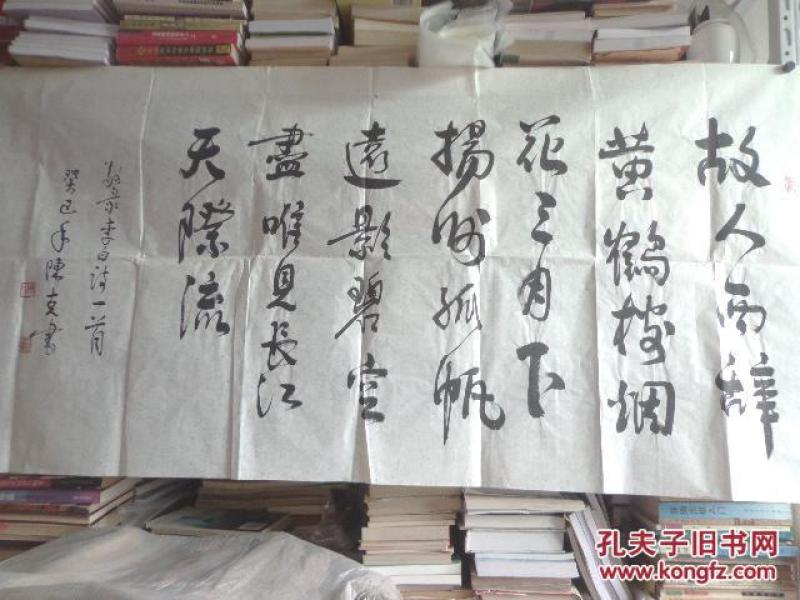 故人西辞
黄鹤楼烟
花三月下
揚州孤帆
遠影碧空
盡唯見長江
天際流
敬录李白诗一首
癸巳年陳克书
孔夫子旧书网
www.kongfz.com